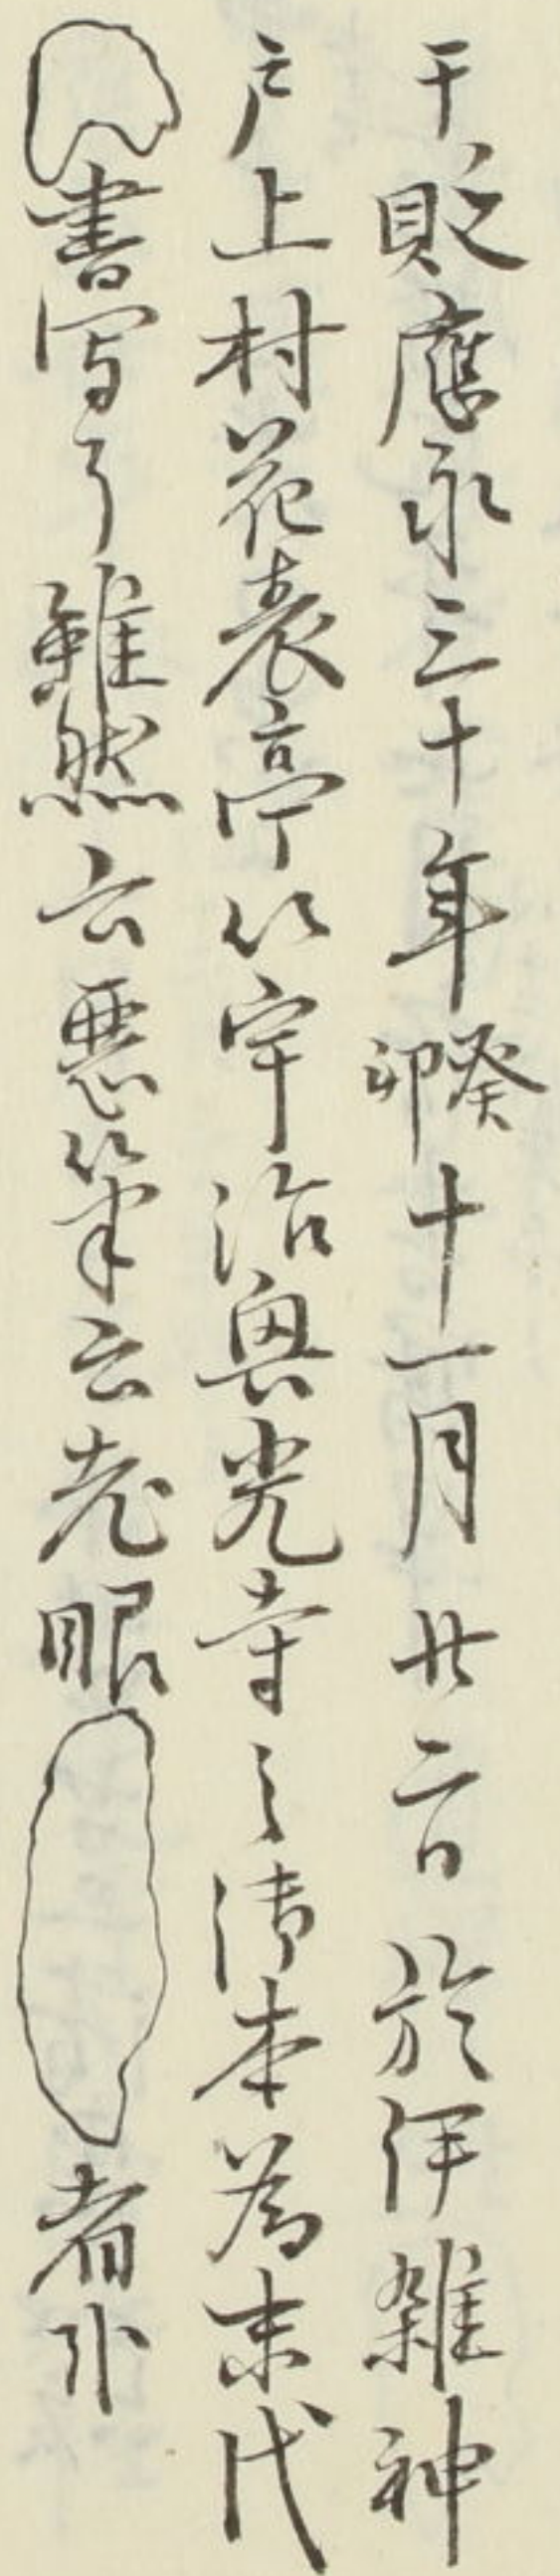 干貶應永三十年癸卯十一月廿二日於伊雑神
戸上村花表亭以宇治興光寺之御本為末代
書写了雖然云悪筆云老眼 者外